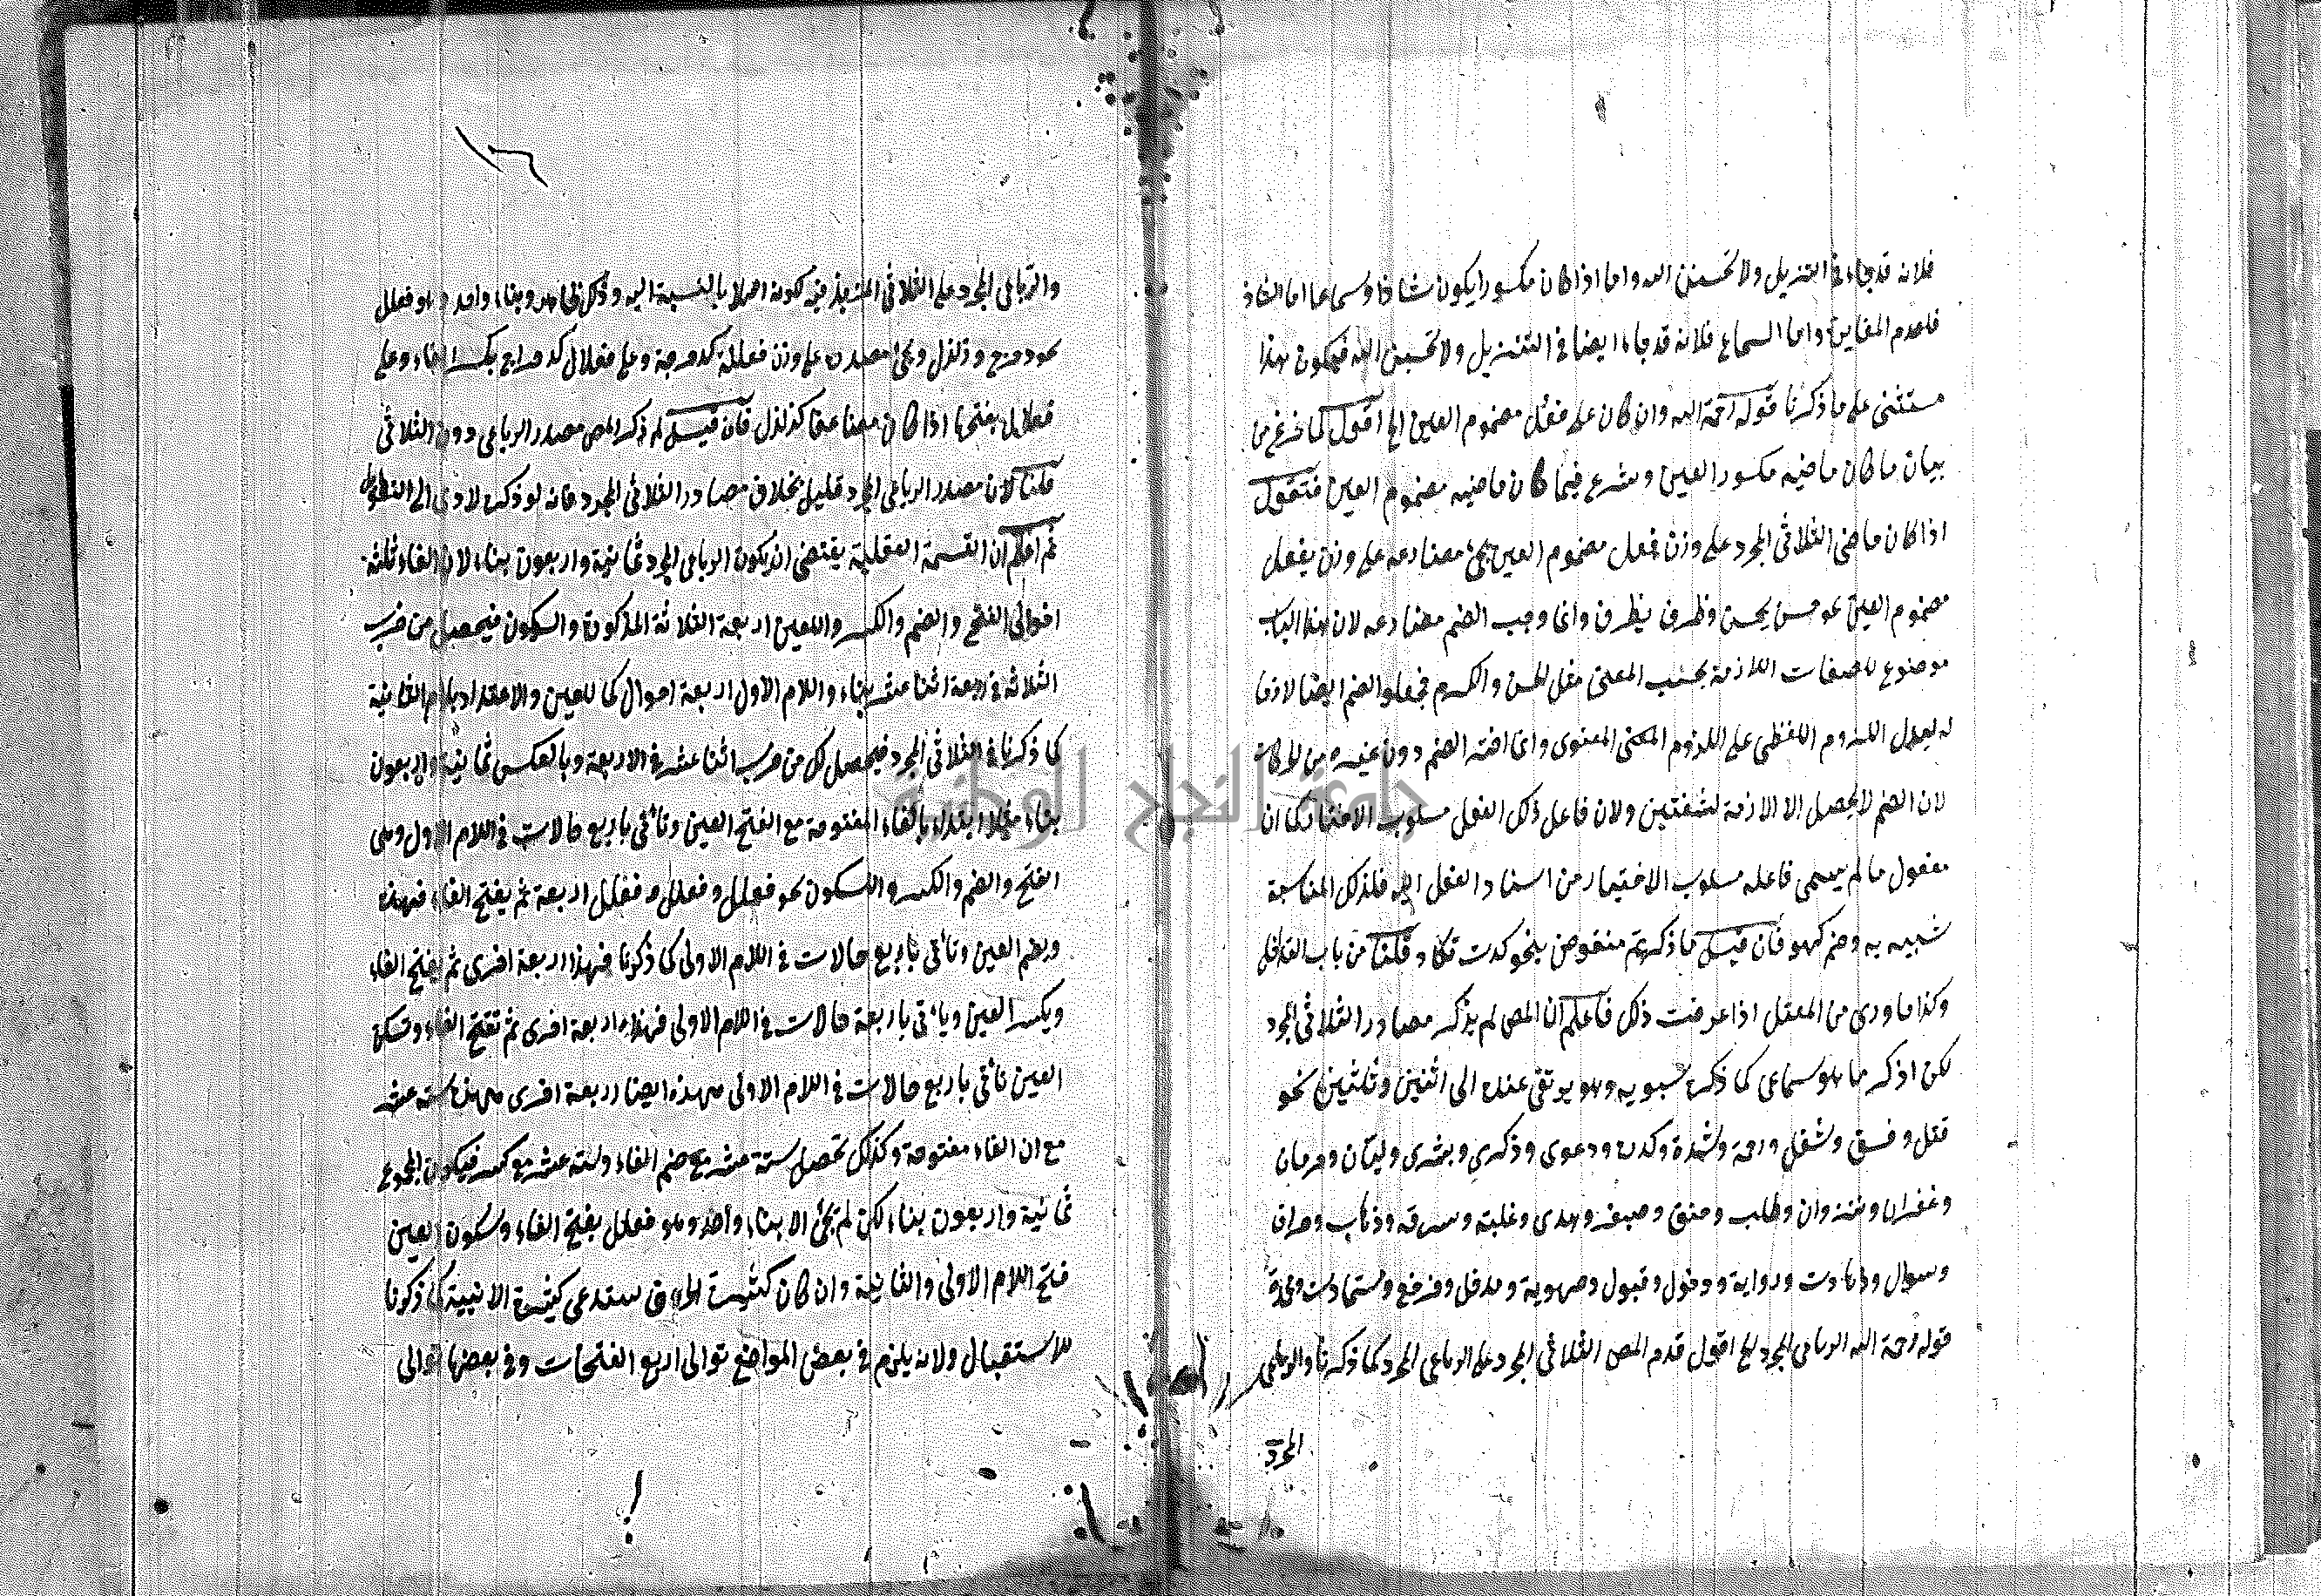 فلانه قد جاء في التنزيل ولا تحسبن الله واما اذا كان مكسورا يكون شاذا وسماعا اما الشاذ
فلعدم المقايس واما السماع فلانه قد جاء ايضا في التنزيل ولا تحسبن الله فيكون هذا
مستثنى على ما ذكرنا قوله رحمة الله وان كان على فعل مضموم العين الخ اقول لما فرغ من
بيان ما كان ماضيه مكسور العين وشرع فيما كان ماضيه مضموم العين فتقول
اذا كان ماضى الثلاثي المجرد على وزن فعل مضموم العين يجئ مضارعه على وزن يفعل
مضموم العين نحو حسن يحسن وظرف يظرف وانما وجب الضم مضارعه لان هذا الباب
موضوع للصفات اللازمة بحسب المعنى مثل الحسن والكرم فجعلوا الضم ايضا لازما
له ليعدل اللزوم اللفظى على اللزوم المعنوى وانما اختر الضم دون غيره من
لان الضم لا يحصل الا لازمة لشفتين ولان فاعل ذلك الفعل مسلوب الاختيار كما ان
مفعول ما لم يسمى فاعله مسلوب الاختيار من اسناد الفعل اليه فلذلك المناسبة
شبيه به وضم كهو فان قيل ما ذكرتم منقوض بنحو كدت تكاد قلنا من باب
وكذا ما ورى من المعتل اذا عرفت ذلك فاعلم ان المص لم يذكر مصادر الثلاثي المجرد
لكن اذكر ما هو سماعى كما ذكره سيبويه وهو يرتقى عنده الى اثنين وثلثين نحو
قتل وفسق وشغل ورحمة ونشدة وكدرة ودعوى وذكرى وبشرى وليان وحرمان
وغفران ونزوان وطلب وخنق وصغر وهدى وغلبة وسرقه وذهاب وصراف
وسوال وزهادت ودراية ودخول وقبول وصهوبة ومدخل ومرجع ومسعات ومحمدة
قوله رحمة الله الرباعى المجرد الخ اقول قدم المص الثلاثى المجرد على الرباعى المجرد كما ذكرنا والرباعى
المجرد
والرباعى المجرد على الثلاثى المزيد فيه لكونه اصلا بالنسبة اليه وذلك بناء واحد وهو فعلل
نحو دحرج وزلزل ويجئ مصدره على وزن فعللة كدحرجة وعلى فعلال كدحراج بكسر الفاء وعلى
فعلال بفتحها اذا كان مضاعفا كزلزل فان قيل لم ذكر المص مصدر الرباعى دون الثلاثى
قلنا لان مصدر الرباعى المجرد قليل بخلاف مصادر الثلاثى المجرد فانه لو ذكره لادى الى التطويل
ثم اعلم ان القسمة العقلية يقتضى ان يكون الرباعى المجرد ثمانية واربعون بناء لان الفاء ثلثة
احوال الفتح والضم والكسر وللعين اربعة الثلاثة المذكورة والسكون فيحصل من ضرب
الثلاثة في اربعة اثنا عشر بناء وللام الاول اربعة احوال كما للعين والاعتداد بلام الثانية
كما ذكرنا في الثلاثى المجرد فيحصل لك من ضرب اثنا عشر في الاربعة وبالعكس ثمانية واربعون
بناء مثلا ابتداء بالفاء المفتوحة مع الفتح العين وتأتى باربع حالات في اللام الاول وهى
الفتح والضم والكسر والسكون نحو فعلل وفعلل وفعلل اربعة ثم يفتح الفاء فهذه
وبضم العين وتأتى باربع حالات في اللام الاولى كما ذكرنا فهذا اربعة اخرى ثم يفتح الفاء
ويكسر العين ويأتى باربعة حالات في اللام الاولى فهذه اربعة اخرى ثم تفتح الفاء وتسكن
العين تأتى باربع حالات في اللام الاولى فهذه ايضا اربعة اخرى فهذه ستة عشر
مع ان الفاء مفتوحة وكذلك تحصل ستة عشر مع ضم الفاء وستة عشر مع كسر فيكون المجموع
ثمانية واربعون بناء لكن لم يجئ الا بناء واحد وهو فعلل بفتح الفاء وسكون العين
فتح اللام الاولى والثانية وان كان كثرة الحروف ستدعى كثرة الابنية كما ذكرنا
للاستقبال ولانه يلزم في بعض المواضع توالى اربع الفتحات وفي بعضها توالى
جامعة النجاح الوطنية